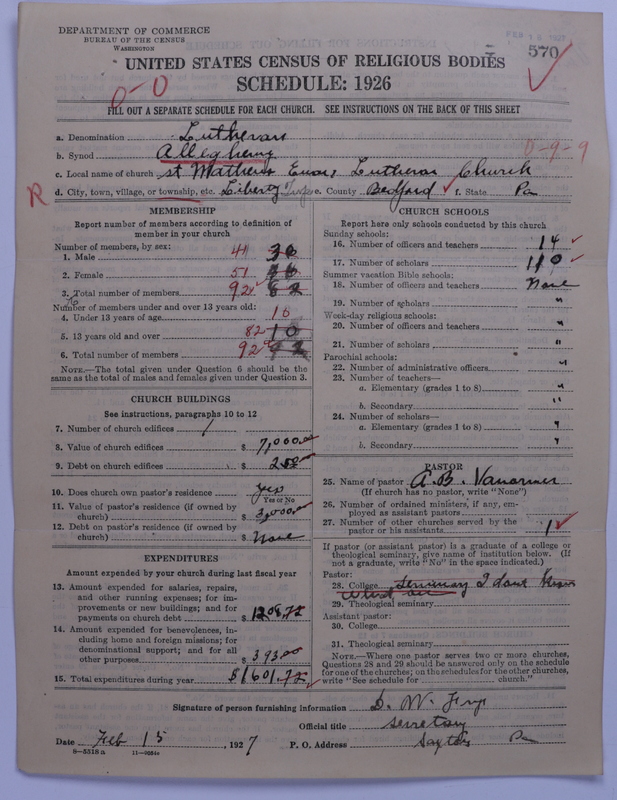 DEPARTMENT OF COMMERCE
BUREAU OF THE CENSUS
WASHINGTON
FEB 18 1927
570
UNITED STATES CENSUS OF RELIGIOUS BODIES
SCHEDULE: 1926
0-0
FILL OUT A SEPARATE SCHEDULE FOR EACH CHURCH. SEE INSTRUCTIONS ON THE BACK OF THIS SHEET
a. Denomination Lutheran
b. Synod Allegheny
0-9-9
c. Local name of church St Mathews Evan. Lutheran Church
R
d. City, town, village, or township, etc. Liberty Twp e. County Bedford f. State Pa
MEMBERSHIP
Report number of members according to definition of member in your church
Number of members, by sex:
1. Male 41 36
2. Female 51
3. Total number of members 92 82
Number of members under and over 13 years old:
4. Under 13 years of age 10
5. 13 years old and over 82 10
6. Total number of members 92
NOTE.—The total given under Question 6 should be
same as the total of males and females given under Question 3.
CHURCH BUILDINGS
See instructions, paragraphs 10 to 12
7. Number of church edifices 1
8. Value of church edifices $ 7,000.00
9. Debt on church edifices $
10. Does church own pastor's residence yes
Yes or No
11. Value of pastor's residence (if owned by
church) $ 3,000.00
12. Debt on pastor's residence (if owned by
church) $ None
EXPENDITURES
Amount expended by your church during last fiscal year
13. Amount expended for salaries, repairs,
and other running expenses; for im-
provements or new buildings; and for
payments on church debt $ 1208.72
14. Amount expended for benevolences, in-
cluding home and foreign missions; for
denominational support; and for all
other purposes $ 393.00
15. Total expenditures during year $1601.72
CHURCH SCHOOLS
Report here only schools conducted by this church
Sunday schools:
16. Number of officers and teachers 14
17. Number of scholars 110
Summer vacation Bible schools:
18. Number of officers and teachers None
19. Number of scholars "
Week-day religious schools:
20. Number of officers and teachers "
21. Number of scholars "
Parochial schools:
22. Number of administrative officers "
23. Number of teachers—
a. Elementary (grades 1 to 8) "
b. Secondary "
24. Number of scholars—
a. Elementary (grades 1 to 8) "
b. Secondary "
PASTOR
25. Name of pastor A. B. Vanormer
(If church has no pastor, write "None")
26. Number of ordained ministers, if any, em-
ployed as assistant pastors
27. Number of other churches served by the
pastor or his assistants 1
If pastor (or assistant pastor) is a graduate of a college or
theological seminary, give name of institution below. (If
not a graduate, write "No" in the space indicated.)
Pastor:
28. College Seminary I dont know
what one
29. Theological seminary
Assistant pastor:
30. College
31. Theological seminary
NOTE.—Where one pastor serves two or more churches,
Questions 28 and 29 should be answered only on the schedule
for one of the churches; on the schedules for the other churches,
write "See schedule for church."
Signature of person furnishing information D. W. Frye
Official title secretary
Date Feb 15, 1927 P. O. Address Saxton Pa
8-5318a